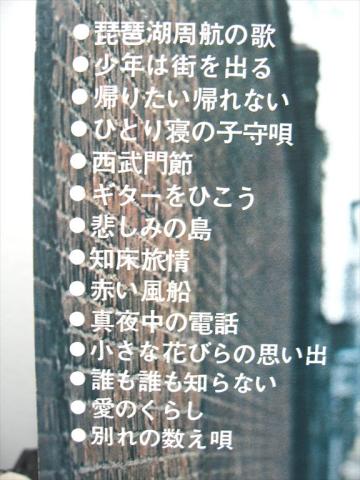 ●琵琶湖周航の歌
●少年は街を出る
●帰りたい帰れない
●ひとり寝の子守唄
●西武門節
●ギターをひこう
●悲しみの島
●知床旅情
●赤い風船
●真夜中の電話
●小さな花びらの思い出
●誰も誰も知らない
●愛のくらし
●別れの数え唄